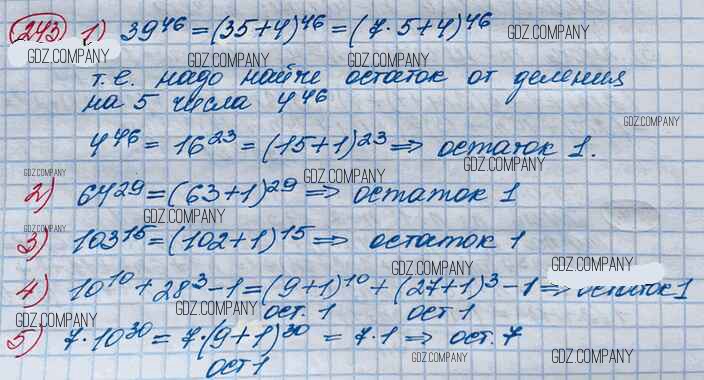 243 1) 39⁴⁶ = (35+4)⁴⁶ = (7·5+4)⁴⁶
GDZ.COMPANY GDZ.COMPANY GDZ.COMPANY GDZ.COMPANY
т.е. надо найти остаток от деления
на 5 числа 4⁴⁶
GDZ.COMPANY
4⁴⁶ = 16²³ = (15+1)²³ ⇒ остаток 1.
GDZ.COMPANY GDZ.COMPANY GDZ.COMPANY
2) 64²⁹ = (63+1)²⁹ ⇒ остаток 1
GDZ.COMPANY GDZ.COMPANY
3) 103¹⁵ = (102+1)¹⁵ ⇒ остаток 1
GDZ.COMPANY GDZ.COMPANY
4) 10¹⁰ + 28³ - 1 = (9+1)¹⁰ + (27+1)³ - 1 ⇒ остаток 1
ост. 1 ост 1
GDZ.COMPANY GDZ.COMPANY GDZ.COMPANY
5) 7·10³⁰ = 7·(9+1)³⁰ = 7·1 ⇒ ост. 7
ост 1
GDZ.COMPANY GDZ.COMPANY